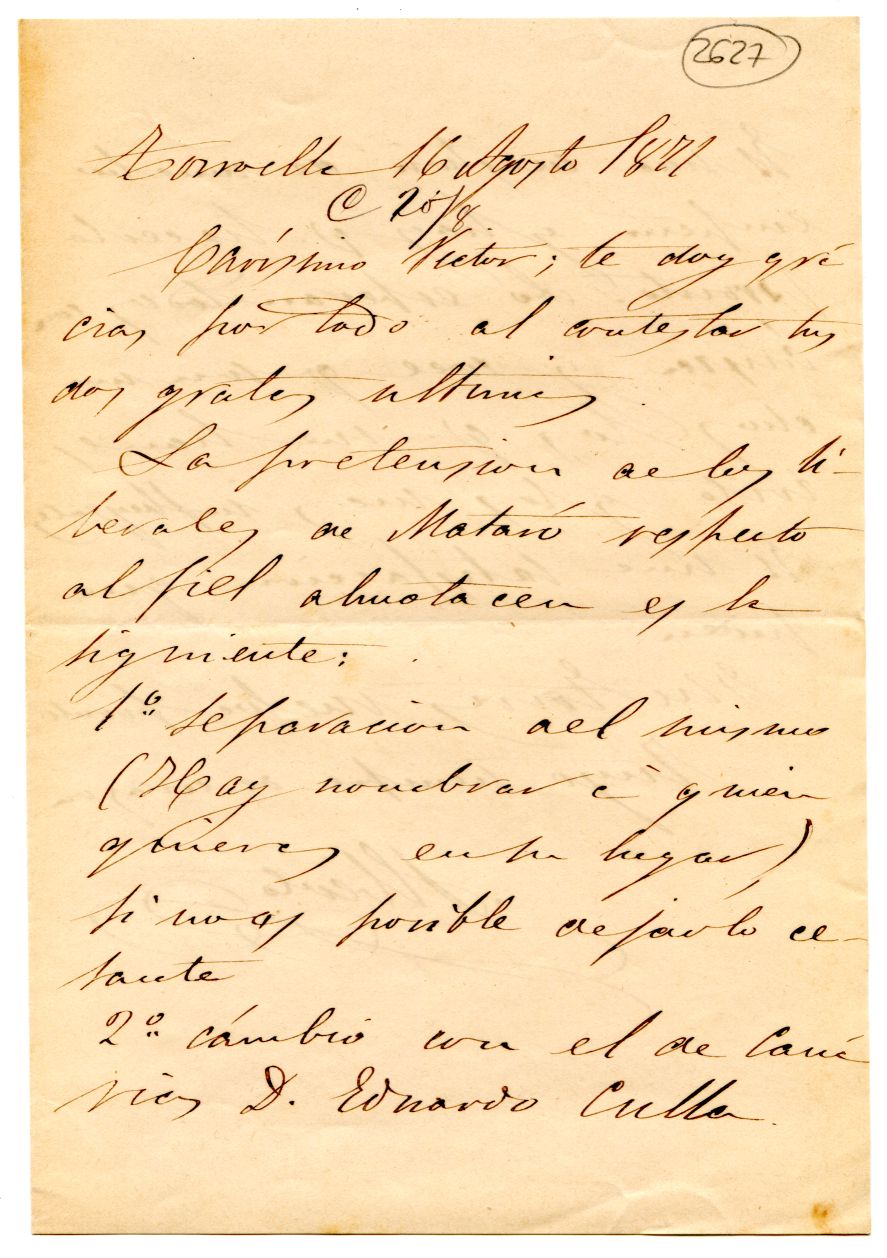 2627
Torroella 16 Agosto 1871
C 20/8
Carísimo Victor; te doy grá
cias por todo al contestar tus
dos gratas ultimas
La pretension de los li-
berales de Mataró respecto
al fiel almotacen es la
siguiente:
1º separacion del mismo
(Hay nombrar á quien
quieras en su lugar)
si no es posible dejarlo ce-
sante
2º cámbio con el de Caná
rias D. Eduardo Culla